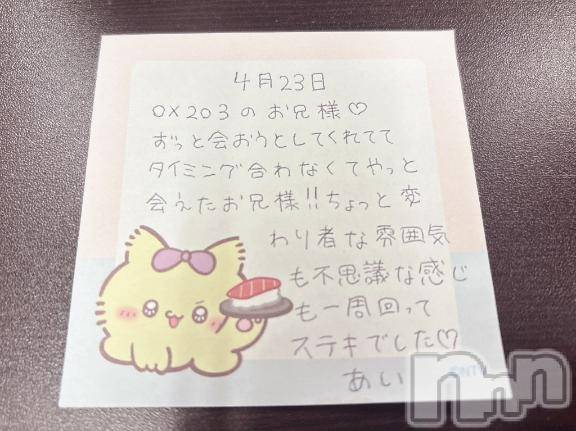 4月23日
OX203のお兄様♡
ずっと会おうとしてくれてて
タイミング合わなくてやっと
会えたお兄様!!ちょっと変
わり者な雰囲気
も不思議な感じ
も一周回って
ステキでした♡
あい
©NTV
nnn